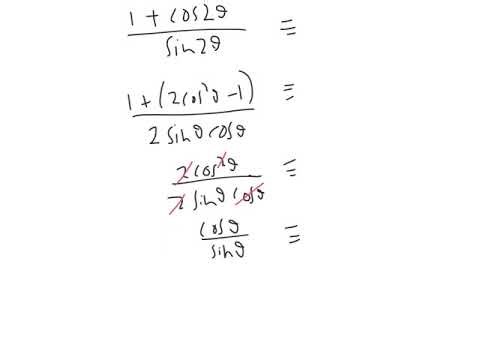 1 + cos2θ / sin2θ ≡
1 + (2cos²θ - 1) / 2 sinθ cosθ ≡
2cos²θ / 2 sinθ cosθ ≡
cosθ / sinθ ≡